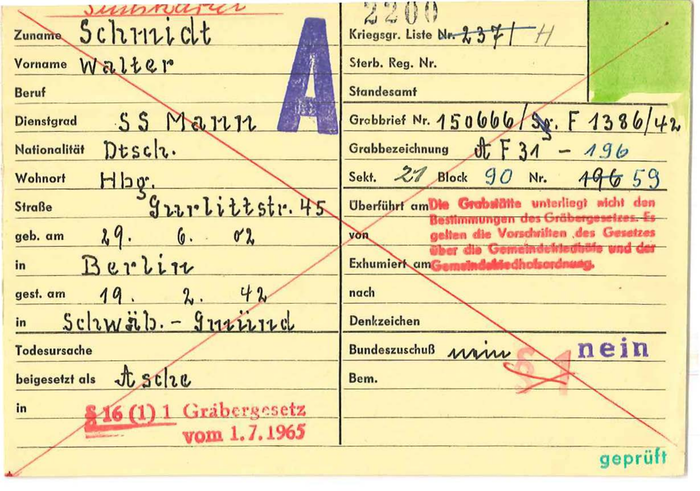 2200
Zuname Schmidt
Vorname Walter
Beruf
Dienstgrad SS Mann
A
Nationalität Dtsch.
Wohnort Hbg.
Straße Gurlittstr. 45
geb. am 29. 6. 02
in Berlin
gest. am 19. 2. 42
in Schwäb. - Gmünd
Todesursache
beigesetzt als Asche
in
§ 16 (1) 1 Gräbergesetz
vom 1.7.1965
Kriegsgr. Liste Nr. 237/ H
Sterb. Reg. Nr.
Standesamt
Grabbrief Nr. 150666/Sg. F 1386/42
Grabbezeichnung A F 31 - 196
Sekt. 21 Block 90 Nr. 196 59
Überführt am
von
Die Grabstätte unterliegt nicht den
Bestimmungen des Gräbergesetzes. Es
gelten die Vorschriften des Gesetzes
über die Gemeindefriedhöfe und der
Gemeindefriedhofsordnung.
Exhumiert am
nach
Denkzeichen
Bundeszuschuß nein nein
§ 1
Bem.
geprüft